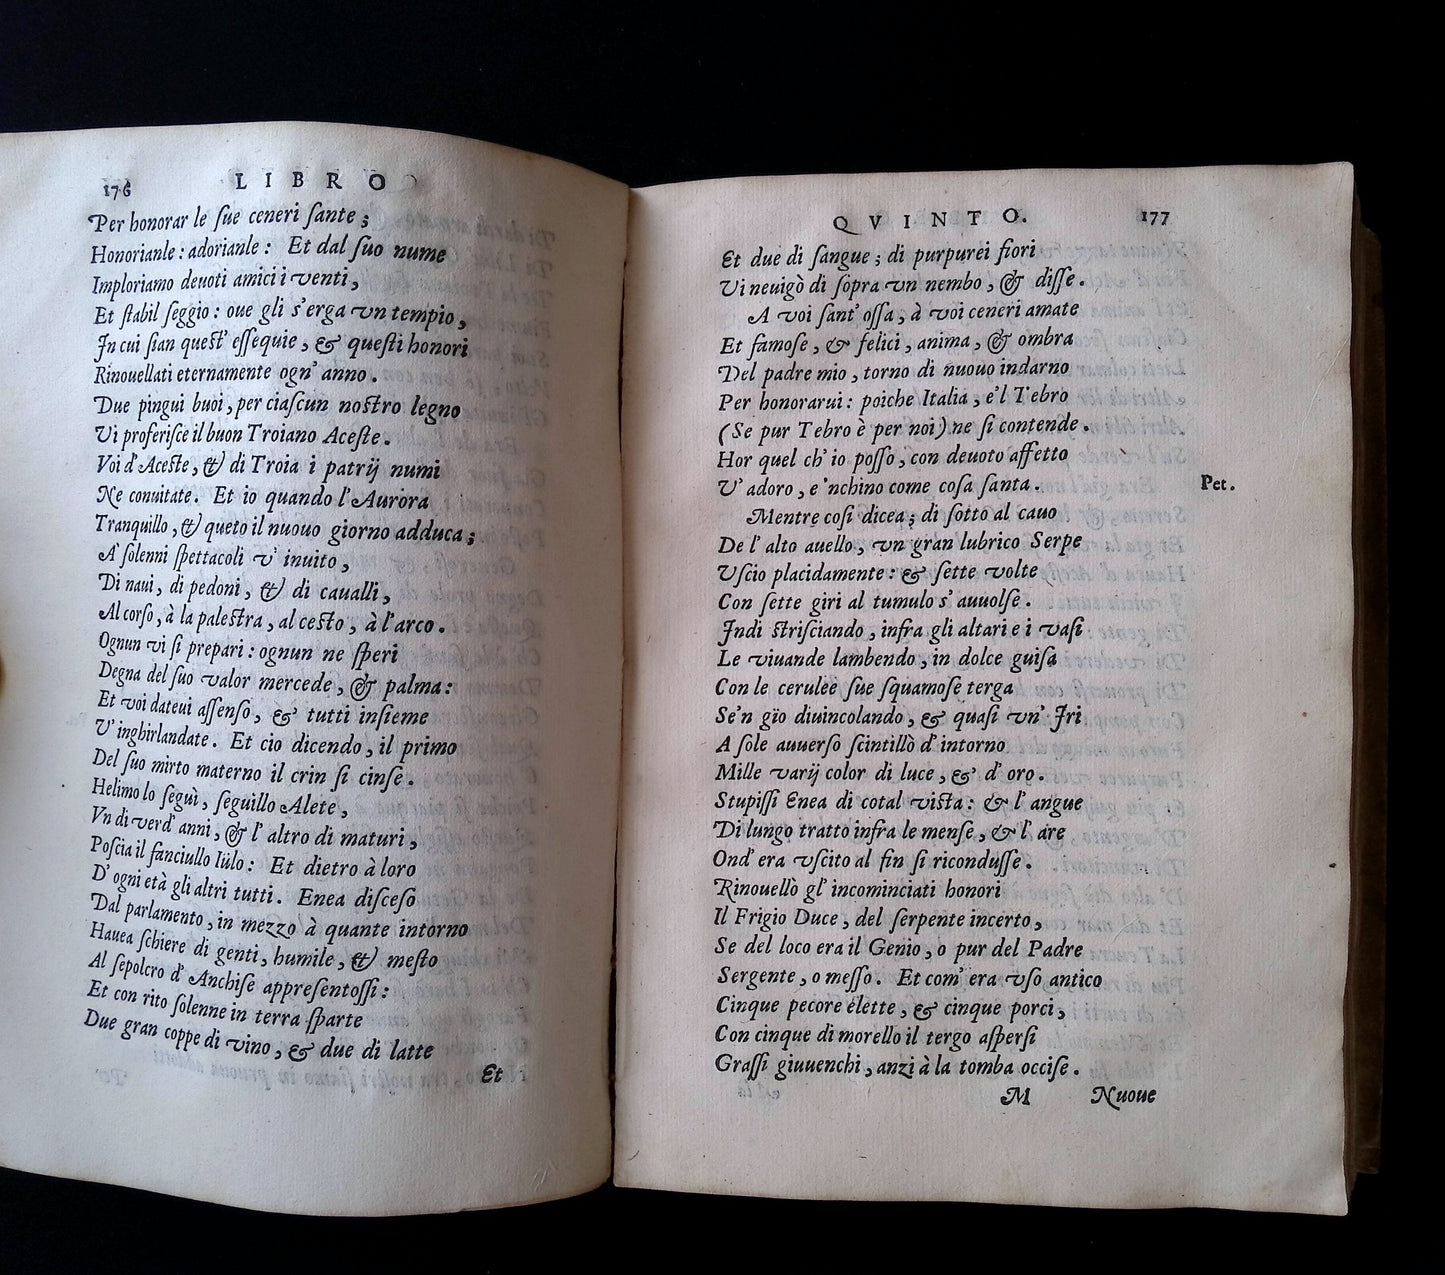 176
LIBRO
Per honorar le ſue ceneri ſante;
Honorianle: adorianle: Et dal ſuo nume
Imploriamo deuoti amici i venti,
Et ſtabil ſeggio: oue gli s'erga vn tempio,
In cui ſian queſt' eſſequie, & queſti honori
Rinouellati eternamente ogn' anno.
Due pingui buoi, per ciaſcun noſtro legno
Vi proferiſce il buon Troiano Aceſte.
Voi d'Aceſte, & di Troia i patrij numi
Ne conuitate. Et io quando l'Aurora
Tranquillo, & queto il nuouo giorno adduca;
A' ſolenni ſpettacoli v' inuito,
Di naui, di pedoni, & di caualli,
Al corſo, à la paleſtra, al ceſto, à l'arco.
Ognun vi ſi prepari: ognun ne ſperi
Degna del ſuo valor mercede, & palma:
Et voi dateui aſſenſo, & tutti inſieme
V' inghirlandate. Et cio dicendo, il primo
Del ſuo mirto materno il crin ſi cinſe.
Helimo lo ſeguì, ſeguillo Alete,
Vn di verd' anni, & l' altro di maturi,
Poſcia il fanciullo Iülo: Et dietro à loro
D' ogni età gli altri tutti. Enea diſceſo
Dal parlamento, in mezzo à quante intorno
Hauea ſchiere di genti, humile, & meſto
Al ſepolcro d' Anchiſe appreſentoſſi:
Et con rito ſolenne in terra ſparte
Due gran coppe di vino, & due di latte
Et
QVINTO.
177
Et due di ſangue; di purpurei fiori
Vi neuigò di ſopra vn nembo, & diſſe.
A voi ſant' oſſa, à voi ceneri amate
Et famoſe, & felici, anima, & ombra
Del padre mio, torno di nuouo indarno
Per honorarui: poiche Italia, e'l Tebro
(Se pur Tebro è per noi) ne ſi contende.
Hor quel ch' io poſſo, con deuoto affetto
V' adoro, e 'nchino come coſa ſanta.
Pet.
Mentre coſi dicea; di ſotto al cauo
De l' alto auello, vn gran lubrico Serpe
Vſcio placidamente: & ſette volte
Con ſette giri al tumulo s' auuolſe.
Indi ſtriſciando, infra gli altari e i vaſi
Le viuande lambendo, in dolce guiſa
Con le cerulee ſue ſquamoſe terga
Se'n gïo diuincolando, & quaſi vn' Iri
A ſole auuerſo ſcintillò d' intorno
Mille varij color di luce, & d' oro.
Stupiſſi Enea di cotal viſta: & l' angue
Di lungo tratto infra le menſe, & l' are
Ond' era vſcito al fin ſi riconduſſe.
Rinouellò gl' incominciati honori
Il Frigio Duce, del ſerpente incerto,
Se del loco era il Genio, o pur del Padre
Sergente, o meſſo. Et com' era vſo antico
Cinque pecore elette, & cinque porci,
Con cinque di morello il tergo aſperſi
Graſſi giuuenchi, anzi à la tomba occiſe.
M
Nuoue